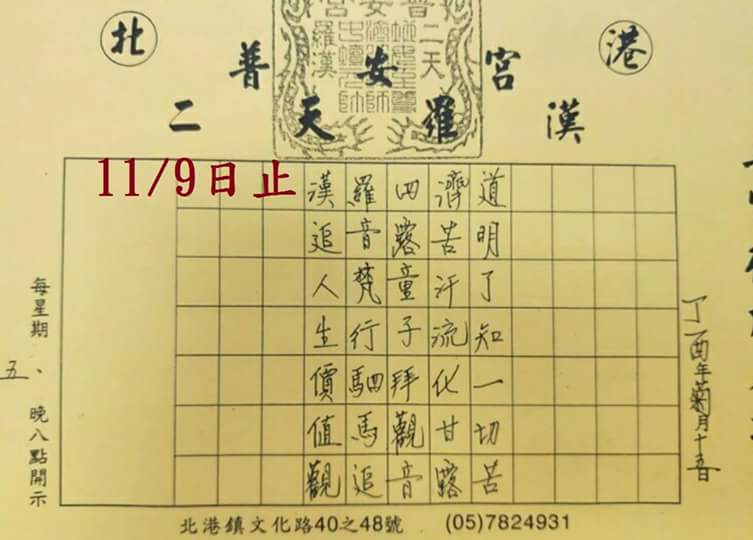 北 港
普安宮
二天羅漢
普安宮
二天
羅漢
11/9日止
丁酉年菊月十五日
道明了知一切苦
濟苦汗流化甘露
四露童子拜觀音
羅音梵行駟馬追
漢追人生價值觀
每星期五、晚八點開示
北港鎮文化路40之48號 (05)7824931